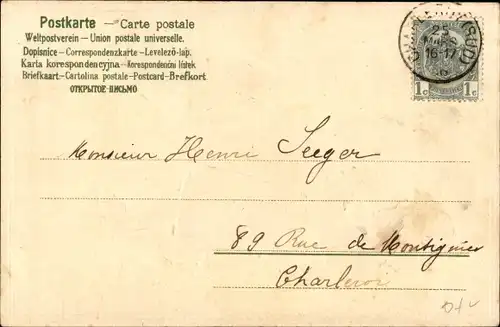 Postkarte — Carte postale
Weltpostverein — Union postale universelle.
Dopisnice — Correspondenzkarte — Levelező-lap.
Karta korespondencyjna — Korespondenční lístek.
Briefkaart — Cartolina postale — Postcard — Brefkort.
ОТКРЫТОЕ ПИСЬМО
CHARLEROI (SUD)
25
MARS
16-17
1c 1c
Monsieur Henri Seeger
89 Rue de Montignies
Charleroi